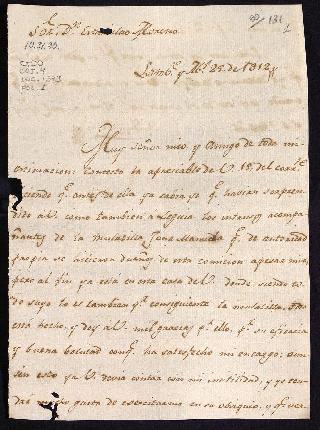 Sor. Dn. Estanislao Moreno
Lamb.e y Ab.l 25. de 1812
Muy Señor mio, y Amigo de toda mi
estimacion: contexto la apreciable de V. 18, del corr.te
diciendo q.e antes de ella ya sabia q.e havian sorpren
dido a V. como tambien a Legia los intensos acompa
ñantes de la mulatilla Juana Manuela q.e de autoridad
propia se hicieron dueños de esta comicion apesar mio,
pero al fin ya está en esa casa de V. donde, siendo to
do suyo lo es tambien p.r consiguiente la mulatilla. Todo
esta hecho, y doy a V. mil gracias p.r ello, p.r su eficacia
y buena voluntad con q.e ha satisfecho mi encargo: aun
sin esto ya V. devia contar con mi inutilidad, y yo ten
dré mucho gusto de exercitarme en su obsequio, y